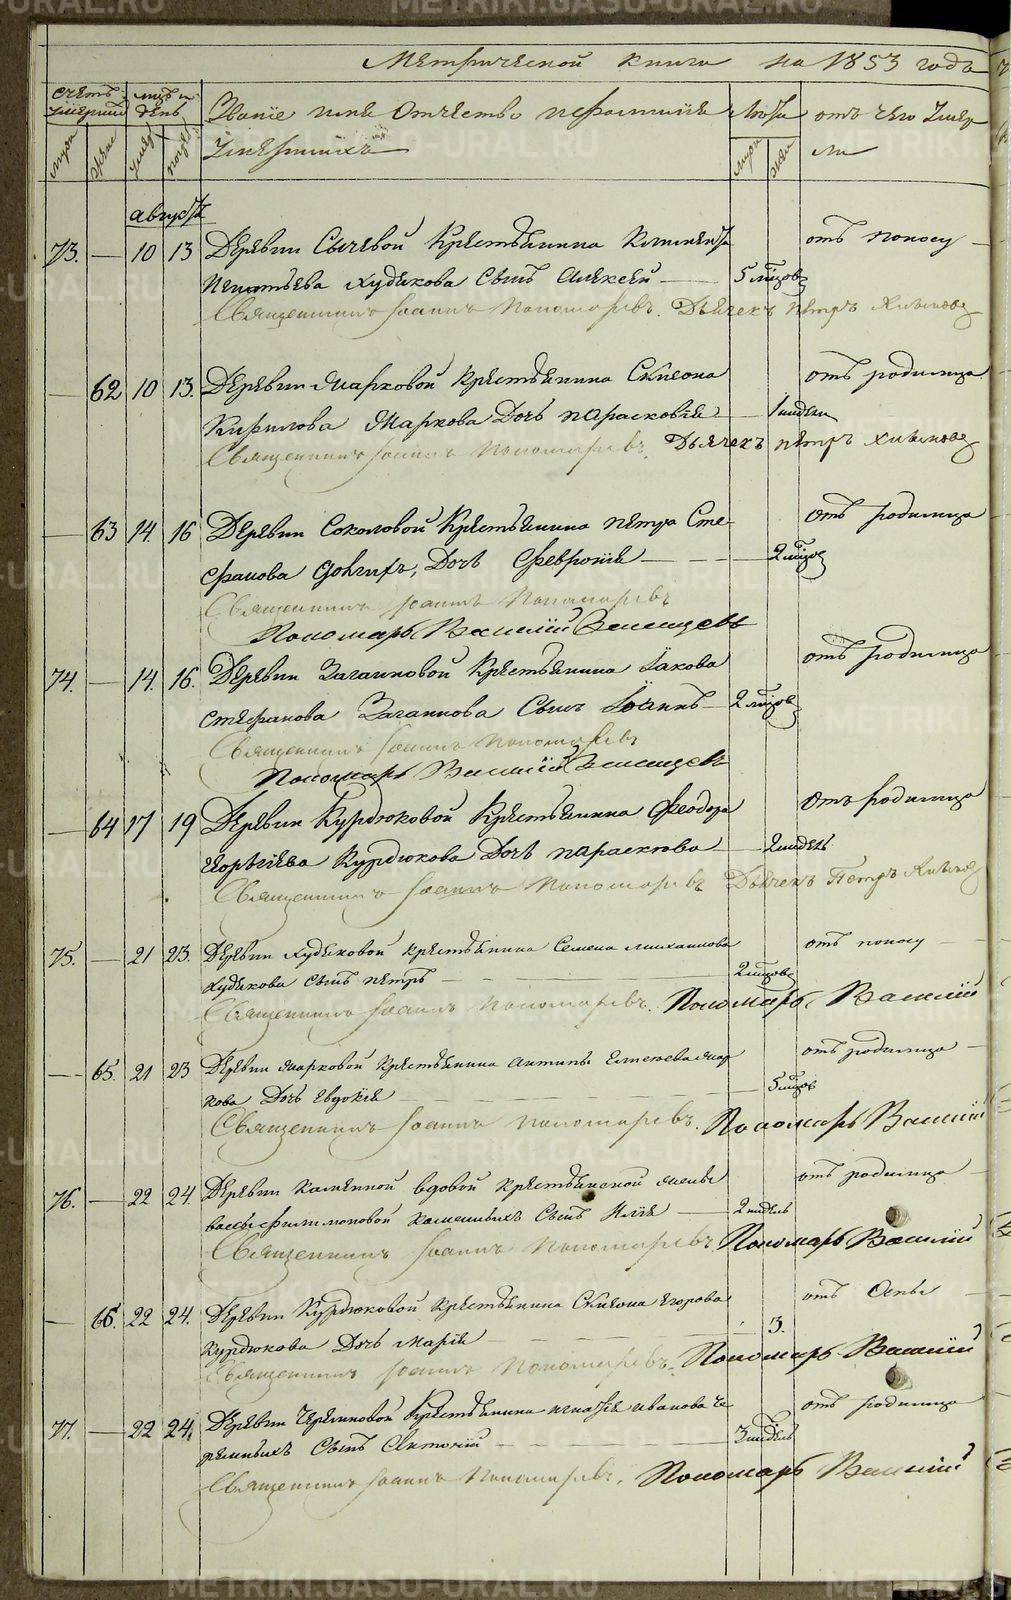 Метрической книги на 1853 годъ
счетъ умершихъ мѣс. и день Званіе имя отчество и фамилія Лѣта отъ чего умер
муж жен умер погр умершихъ муж жен ли
августъ
73. — 10 13 Деревни Сычевой Крестьянина Климента отъ поносу
Игнатьева Худякова Сынъ Алексей — 5 мѣцовъ
Священникъ Іоаннъ Пономаревъ. Дьячекъ Петръ
— 62 10 13. Деревни Марковой Крестьянина Симеона отъ родимца
Кирилова Маркова Дочь Парасковія — 1 недели
Священникъ Іоаннъ Пономаревъ. Дьячекъ Петръ
— 63 14. 16 Деревни Соколовой Крестьянина Петра Сте- отъ родимца
фанова Дочь Февронія — 2 мѣцов
Священникъ Іоаннъ Пономаревъ
Пономарь Василій
74. — 14. 16. Деревни Загаиновой Крестьянина Іакова отъ родимца
Стефанова Загаинова Сынъ Іоаннъ — 2 мѣцовъ
Священникъ Іоаннъ Пономаревъ
Пономарь Василій
— 64 17 19 Деревни Курдюковой Крестьянина Феодора отъ родимца
Георгіева Курдюкова Дочь Параскева — 2 недель
Священникъ Іоаннъ Пономаревъ Дьячекъ Петръ
75. — 21 23. Деревни Худяковой Крестьянина Семена Михаилова отъ поносу
Худякова Сынъ Петръ — 2 мѣцовъ
Священникъ Іоаннъ Пономаревъ. Пономарь Василій
— 65. 21 23 Деревни Марковой Крестьянина Антипы Мар отъ родимца
кова Дочь Евдокія — 5 мѣцов
Священникъ Іоаннъ Пономаревъ. Пономарь Василій
76. — 22 24. Деревни Каменной вдовой крестьянской жены отъ родимца
Вассы Филимоновой Каменныхъ Сынъ Илія — 2 недель
Священникъ Іоаннъ Пономаревъ Пономарь Василій
— 66. 22 24. Деревни Курдюковой Крестьянина Симеона Егорова отъ Оспы
Курдюкова Дочь Марія — 3.
Священникъ Іоаннъ Пономаревъ. Пономарь Василій
77. — 22 24. Деревни Черемновой Крестьянина Игнатія Иванова Че отъ родимца
ремныхъ Сынъ Антоній — 3 недель
Священникъ Іоаннъ Пономаревъ. Пономарь Василій
METRIKI.GASO-URAL.RU